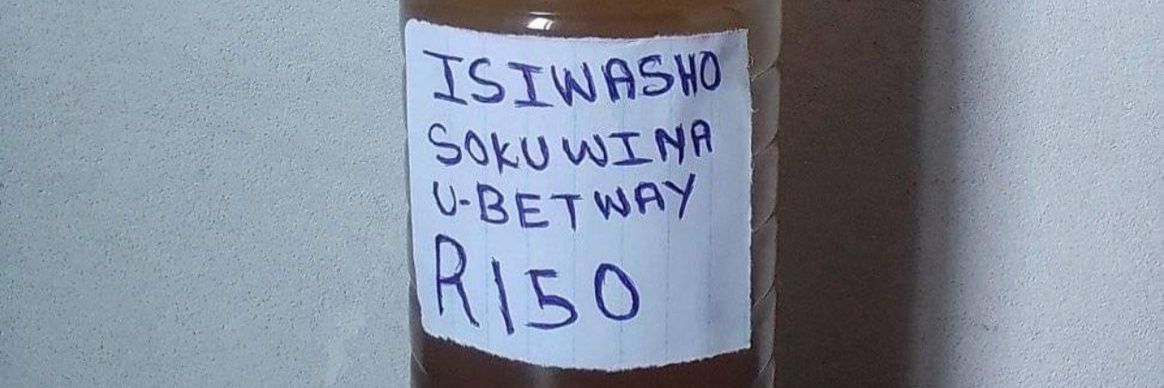 ISIWASHO
SOKUWINA
U-BETWAY
R150